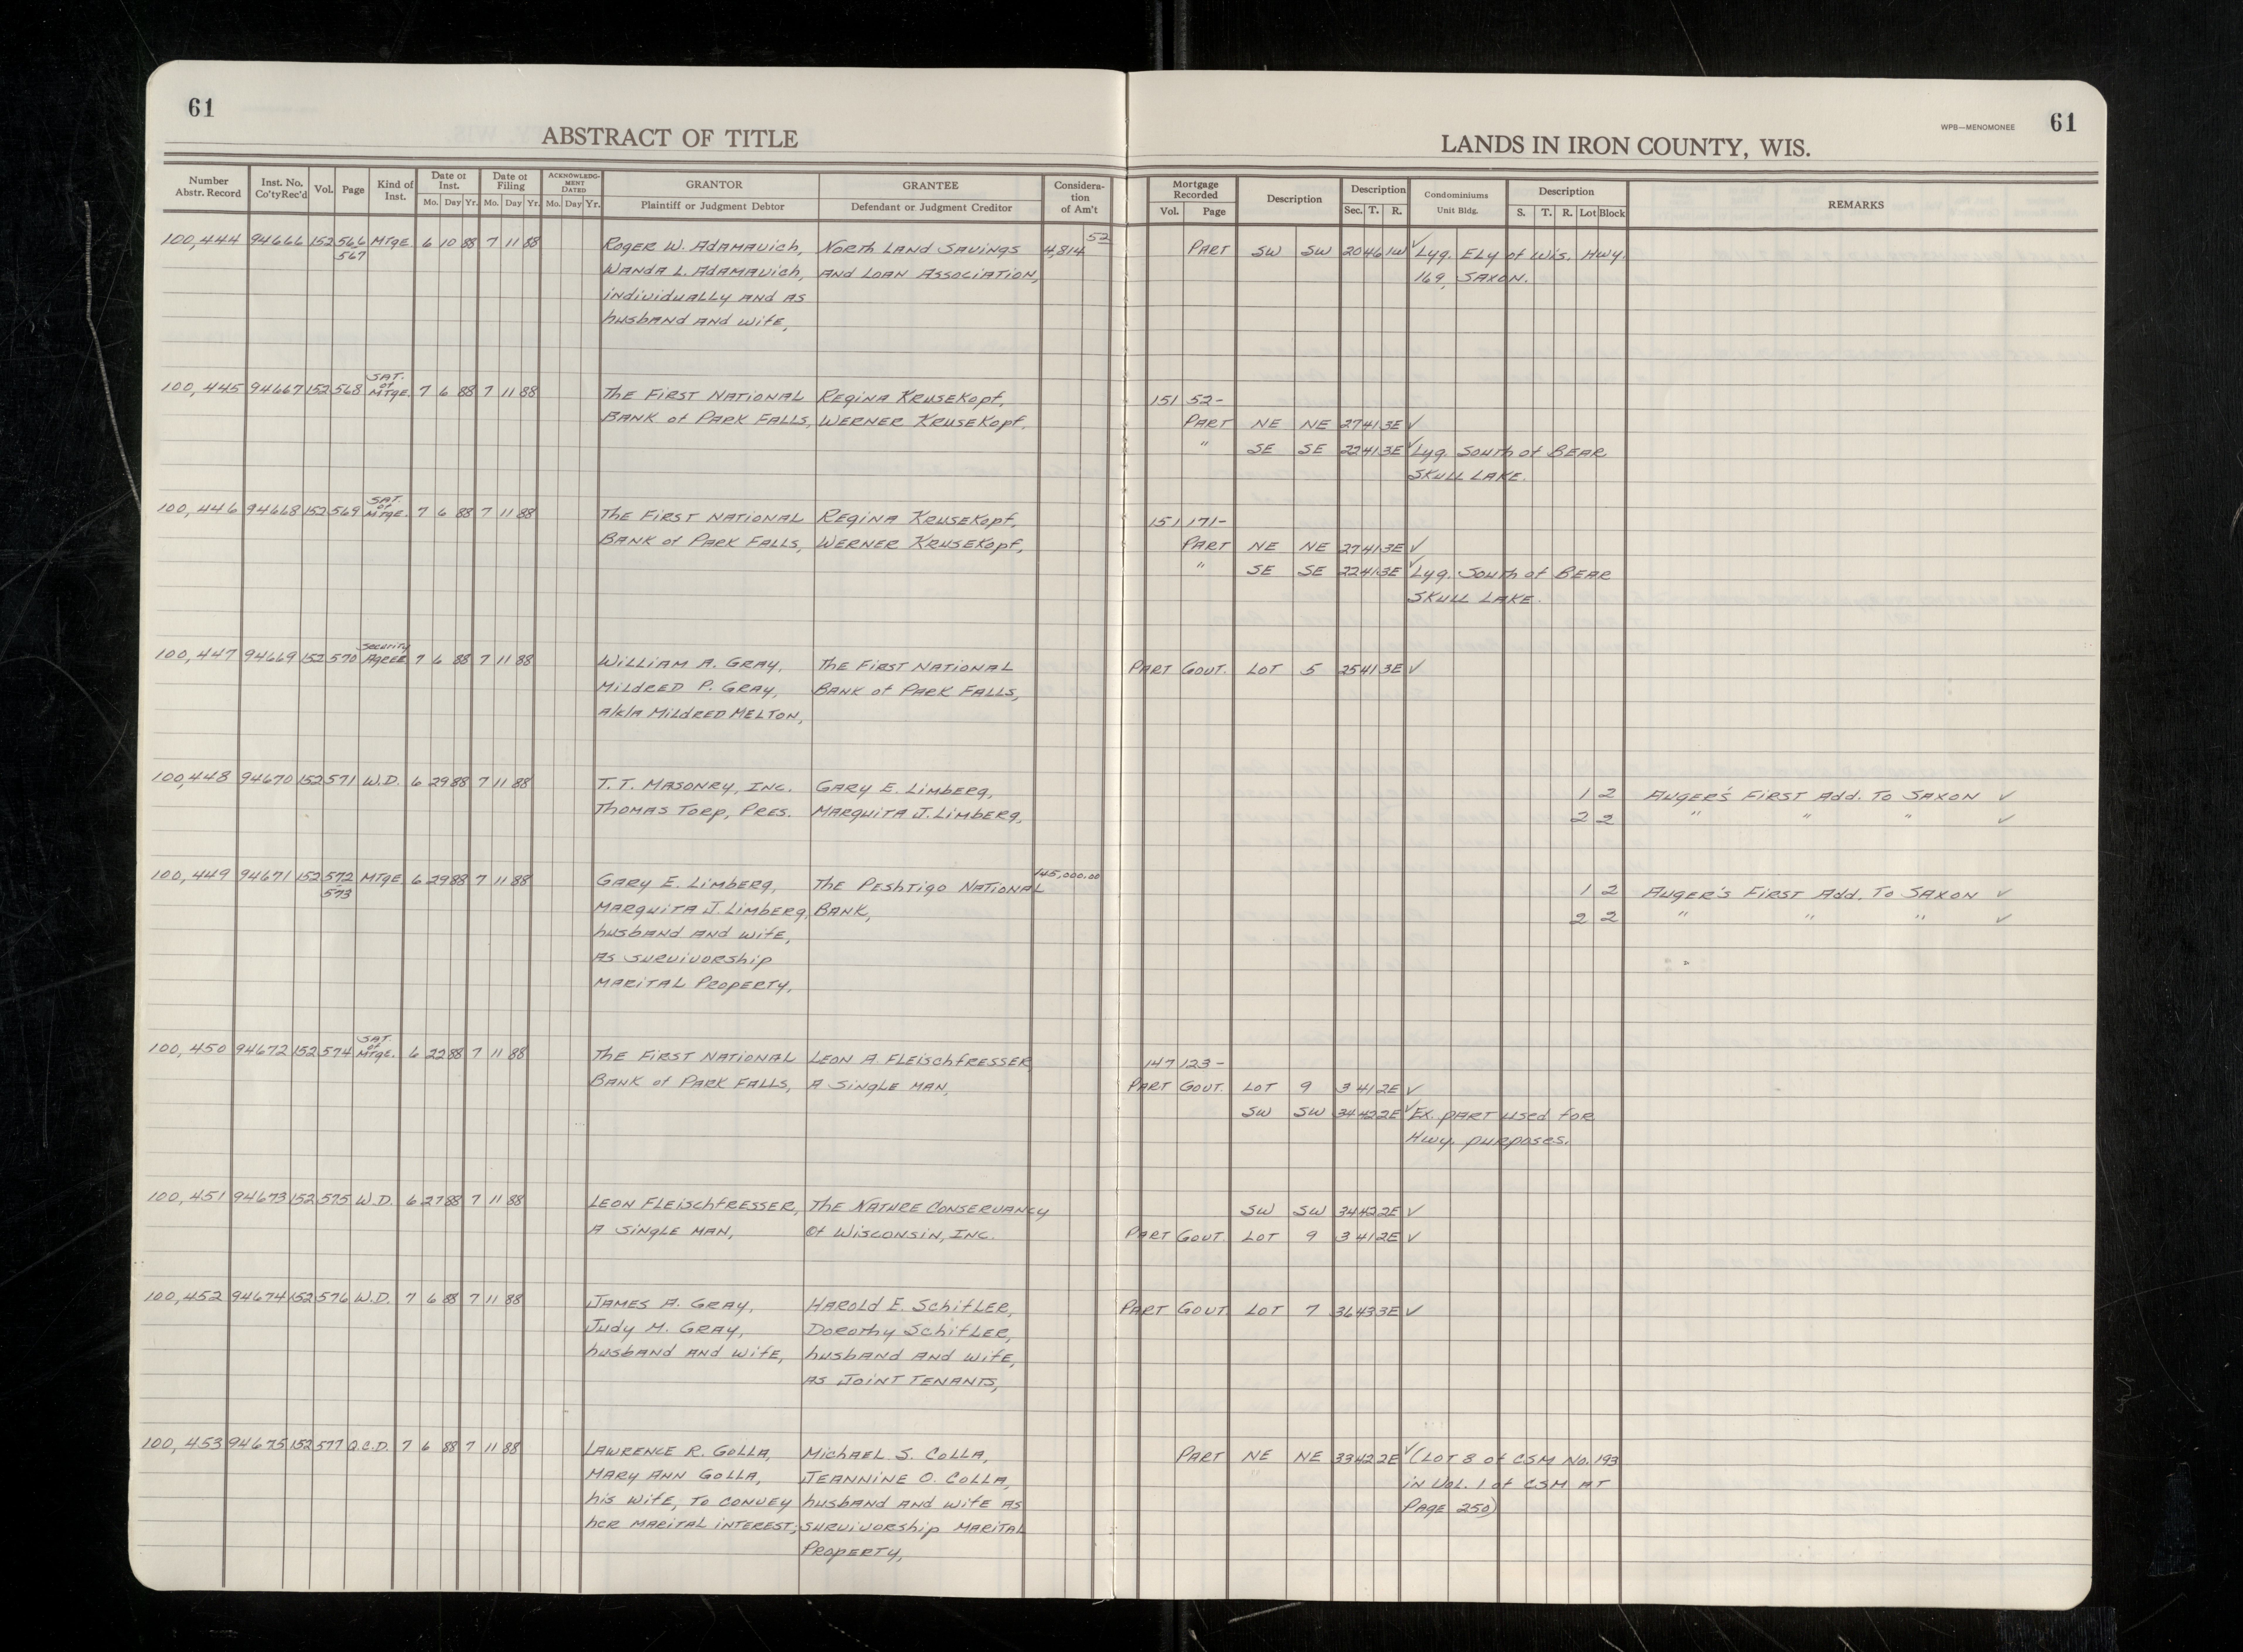 61
ABSTRACT OF TITLE
LANDS IN IRON COUNTY, WIS.
WPB—MENOMONEE 61
Number Abstr. Record Inst. No. Co'tyRec'd Vol. Page Kind of Inst. Date of Inst. Mo. Day Yr. Date of Filing Mo. Day Yr. ACKNOWLEDGMENT DATED Mo. Day Yr. GRANTOR Plaintiff or Judgment Debtor GRANTEE Defendant or Judgment Creditor Consideration of Am't Mortgage Recorded Vol. Page Description Description Sec. T. R. Condominiums Unit Bldg. Description S. T. R. Lot Block REMARKS
100,444 94666 152 566 MTGE 6 10 88 7 11 88 ROGER W. ADAMAVICH, NORTH LAND SAVINGS 4,814 52 PART SW SW 20 46 1W ✓ Lyg. ELY of Wis. Hwy.
567 WANDA L. ADAMAVICH, AND LOAN ASSOCIATION, 169, SAXON.
individually AND AS
husband AND wife,
100,445 94667 152 568 SAT. of MTGE. 7 6 88 7 11 88 The FIRST NATIONAL REGINA KRUSEKOPF, 151 52-
BANK of PARK FALLS, WERNER KRUSEKOPF, PART NE NE 27 41 3E ✓
" SE SE 22 41 3E ✓ Lyg. South of BEAR
SKULL LAKE.
100,446 94668 152 569 SAT. of MTGE. 7 6 88 7 11 88 The FIRST NATIONAL REGINA KRUSEKOPF, 151 171-
BANK of PARK FALLS, WERNER KRUSEKOPF, PART NE NE 27 41 3E ✓
" SE SE 22 41 3E ✓ Lyg. South of BEAR
SKULL LAKE.
100,447 94669 152 570 Security AGREE. 7 6 88 7 11 88 WILLIAM A. GRAY, The FIRST NATIONAL PART GOVT. LOT 5 25 41 3E ✓
MILDRED P. GRAY, BANK of PARK FALLS,
a/k/a MILDRED MELTON,
100,448 94670 152 571 W.D. 6 29 88 7 11 88 T. T. MASONRY, INC. GARY E. LIMBERG, 1 2 AUGER'S FIRST Add. To SAXON ✓
THOMAS TORP, PRES. MARQUITA J. LIMBERG, 2 2 " " " ✓
100,449 94671 152 572 MTGE 6 29 88 7 11 88 GARY E. LIMBERG, The PESHTIGO NATIONAL 145,000.00 1 2 AUGER'S FIRST Add. To SAXON ✓
573 MARQUITA J. LIMBERG, BANK, 2 2 " " " ✓
husband AND wife,
AS SURVIVORSHIP
MARITAL PROPERTY,
100,450 94672 152 574 SAT. of MTGE. 6 22 88 7 11 88 The FIRST NATIONAL LEON A. FLEISCHFRESSER 147 123-
BANK of PARK FALLS, A SINGLE MAN, PART GOVT. LOT 9 3 41 2E ✓
SW SW 34 42 2E ✓ Ex. part used for
Hwy. purposes.
100,451 94673 152 575 W.D. 6 27 88 7 11 88 LEON FLEISCHFRESSER, The NATURE CONSERVANCY SW SW 34 42 2E ✓
A SINGLE MAN, Of WISCONSIN, INC. PART GOVT. LOT 9 3 41 2E ✓
100,452 94674 152 576 W.D. 7 6 88 7 11 88 JAMES A. GRAY, HAROLD E. SCHIFLER, PART GOVT LOT 7 36 43 3E ✓
Judy M. GRAY, DOROTHY SCHIFLER,
husband AND wife, husband AND wife,
AS JOINT TENANTS,
100,453 94675 152 577 Q.C.D. 7 6 88 7 11 88 LAWRENCE R. GOLLA, MICHAEL S. COLLA, PART NE NE 33 42 2E ✓ (LOT 8 of CSM No. 193
MARY ANN GOLLA, JEANNINE O. COLLA, in VOL. 1 of CSM AT
his wife, To CONVEY husband AND wife AS PAGE 250)
her MARITAL INTEREST; SURVIVORSHIP MARITAL
PROPERTY,